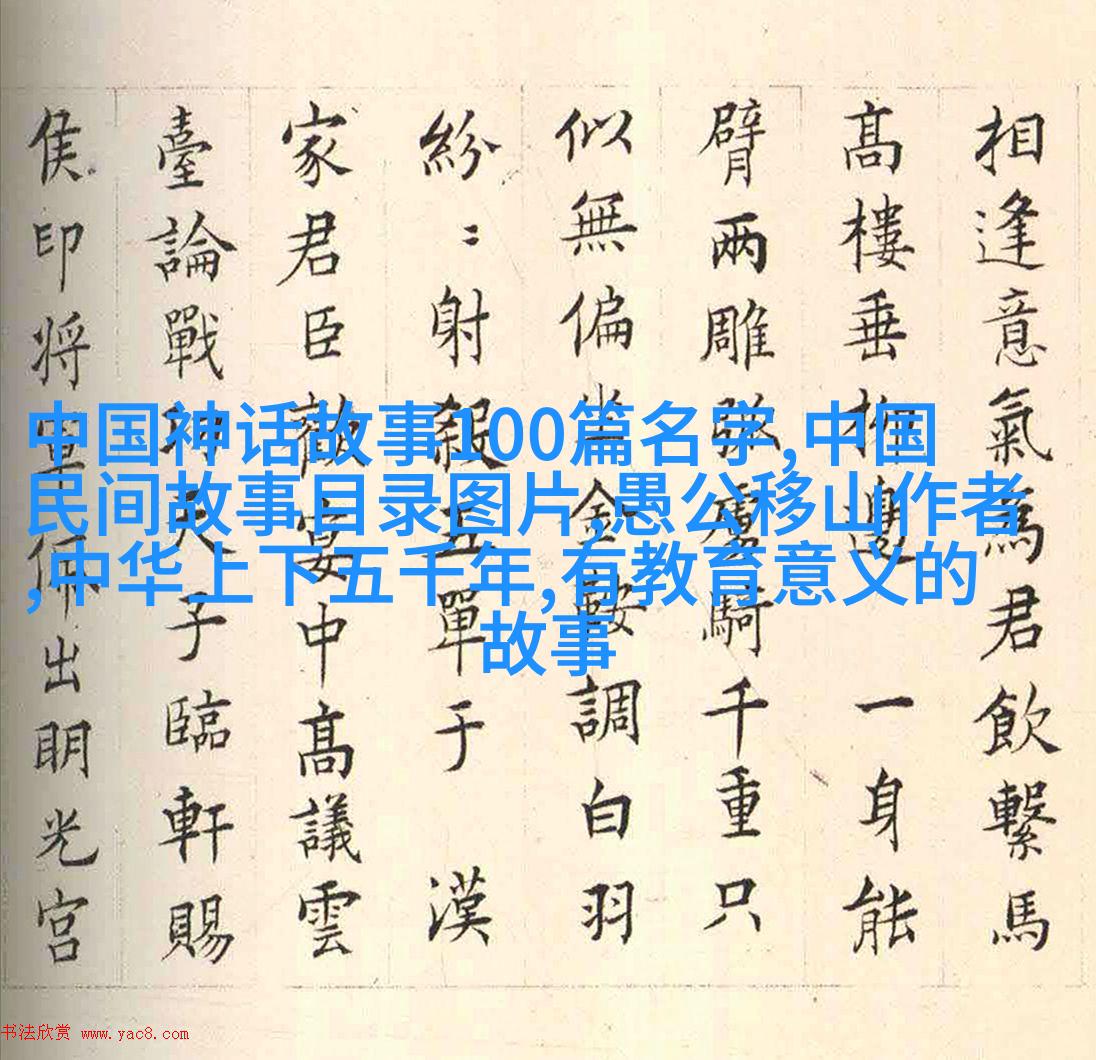 相逢意氣為君飲繫馬
高樓垂柳邊 一身能
臂兩雕弧虜騎千重只
似無偏坐金鞍調白羽
紛〻射殺五單于 漢
家君臣歡宴中高議雲
臺論戰天子臨軒賜
侯印将軍佩出明光宮
中国神话故事100篇名字,中国
民间故事目录图片,愚公移山作者
,中华上下五千年,有教育意义的
故事
书法欣赏 www.yac8.com